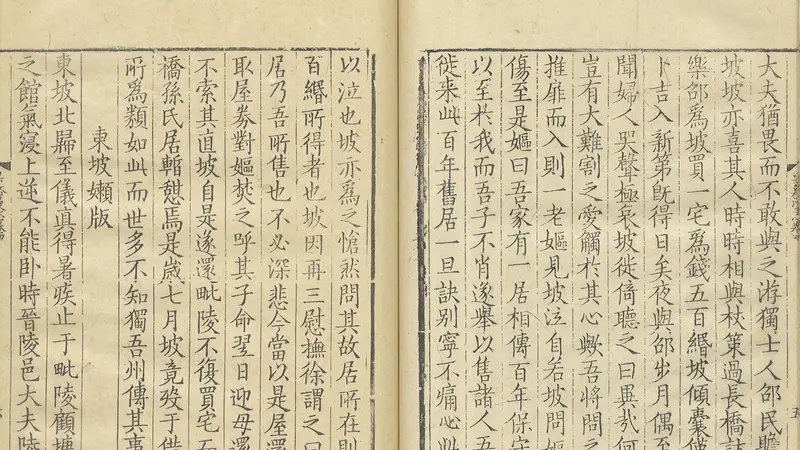 大夫猶畏而不敢與之游獨士人邵民瞻
坡坡亦喜其人時時相與杖策過長橋訪
樂邵爲坡買一宅爲錢五百緡坡傾囊僅
卜吉入新第旣得日矣夜與邵出月偶至
聞婦人哭聲極哀坡徙倚聽之曰異哉何
豈有大難割之愛觸於其心歟吾將問之
推扉而入則一老嫗見坡泣自若坡問嫗
傷至是嫗曰吾家有一居相傳百年保守
以至於我而吾子不肖遂舉以售諸人吾
徙來此百年舊居一旦訣別寧不痛心此
以泣也坡亦爲之愴然問其故居所在則
百緡所得者也坡因再三慰撫徐謂之曰
居乃吾所售也不必深悲今當以是屋還
取屋券對嫗焚之呼其子命翌日迎母還
不索其直坡自是遂還毗陵不復買宅
橋孫氏居暫憩焉是歲七月坡竟歿于借
所爲類如此而世多不知獨吾州傳其事
東坡嬾版
東坡北歸至儀眞得暑疾止于毗陵顧塘
之館氣寖上逆不能卧時晉陵邑大夫陸